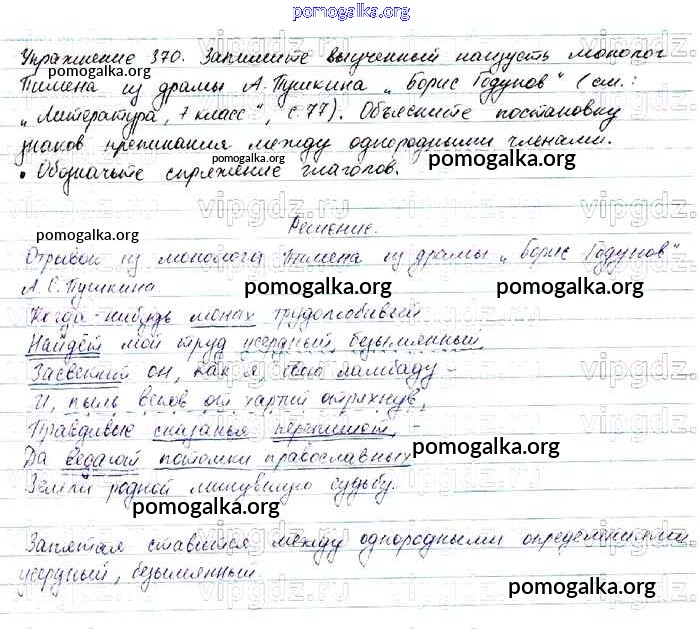 pomogalka.org
Упражнение 370. Запишите выученный наизусть монолог
pomogalka.org
Пимена из драмы А. Пушкина „Борис Годунов" (см.:
„Литература, 7 класс", с. 77). Объясните постановку
знаков препинания между однородными членами.
pomogalka.org pomogalka.org
• Обозначьте спряжение глаголов.
vipgdz.ru vipgdz.ru vipgdz.ru
Решение.
pomogalka.org
Отрывок из монолога Пимена из драмы „Борис Годунов"
А. С. Пушкина
pomogalka.org pomogalka.org
Когда-нибудь монах трудолюбивый
Найдёт мой труд усердный, безымянный,
Засветит он, как я, свою лампаду –
И, пыль веков от хартий отряхнув,
Правдивые сказанья перепишет, –
pomogalka.org
Да ведают потомки православных
Земли родной минувшую судьбу.
pomogalka.org
Запятая ставится между однородными определениями
усердный, безымянный.
pomogalka.org